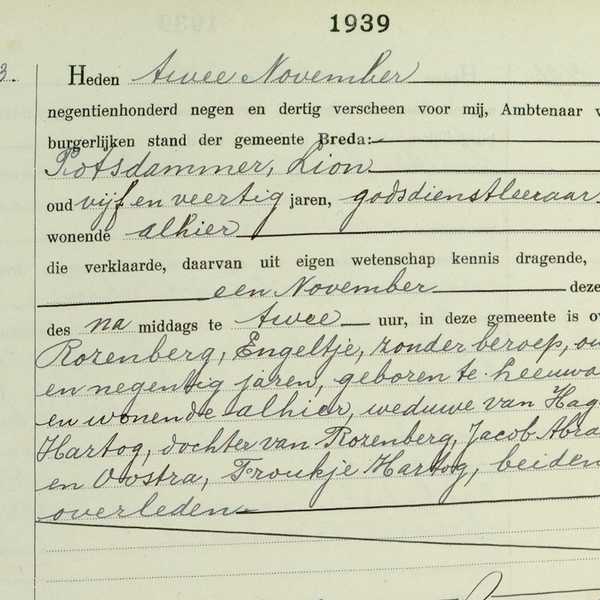 1939
3.
Heden twee November
negentienhonderd negen en dertig verscheen voor mij, Ambtenaar v
burgerlijken stand der gemeente Breda:
Potsdammer, Lion
oud vijf en veertig jaren, godsdienstleeraar
wonende alhier
die verklaarde, daarvan uit eigen wetenschap kennis dragende,
een November deze
des na middags te twee uur, in deze gemeente is ov
Rozenberg, Engeltje, zonder beroep, ou
en negentig jaren, geboren te Leeuwa
en wonende alhier, weduwe van Hag
Hartog, dochter van Rozenberg, Jacob Abra
en Oostra, Froukje Hartog, beiden
overleden